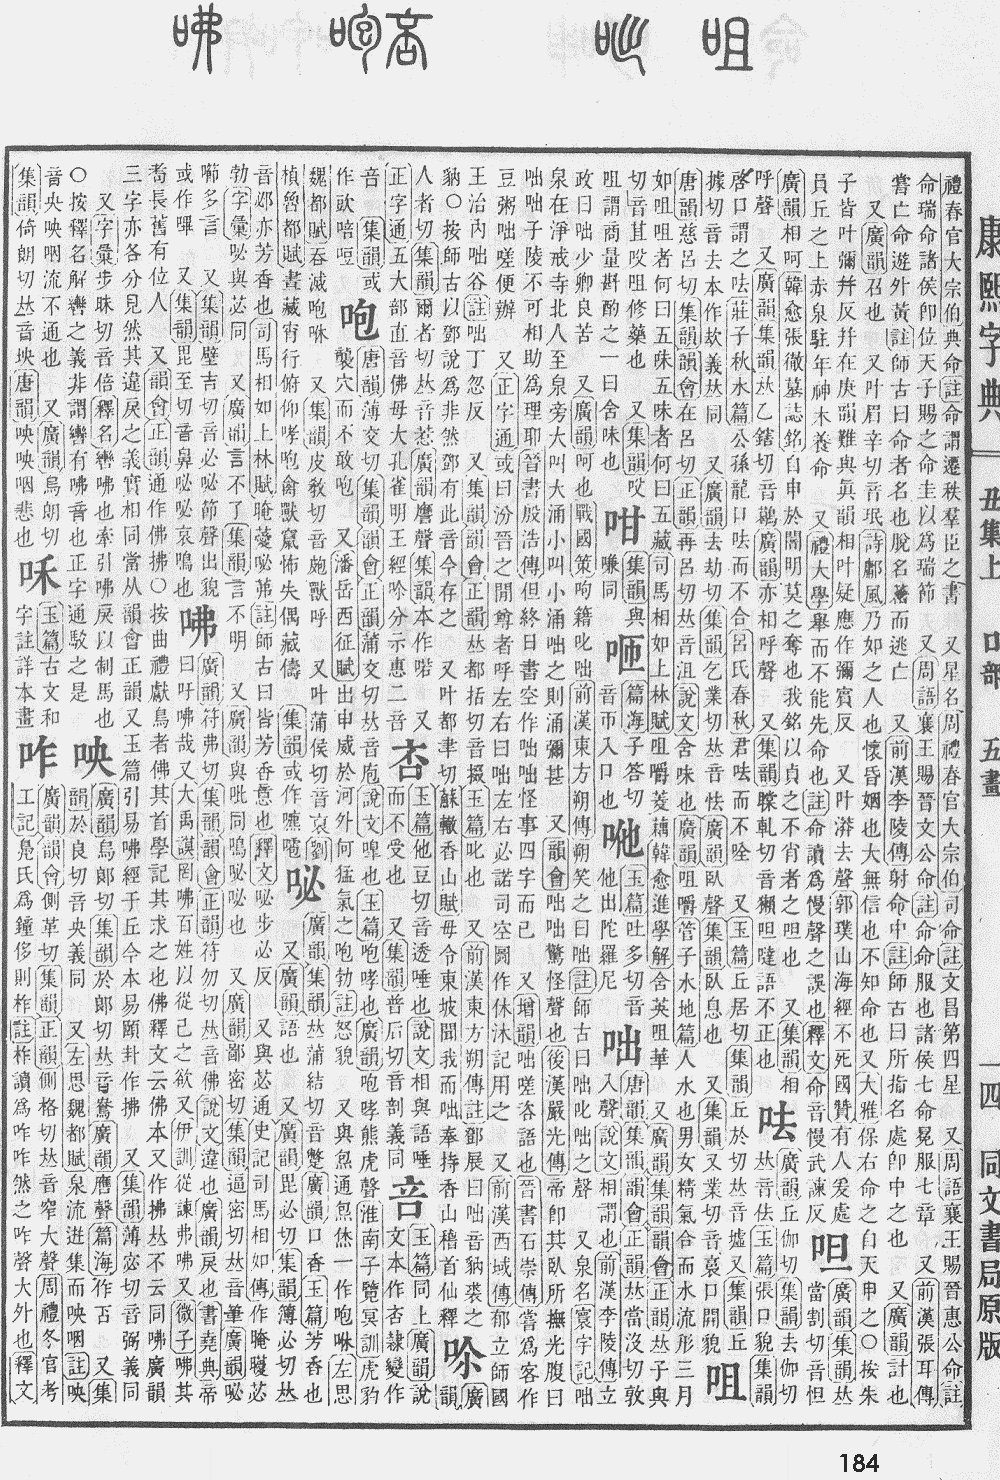 咈 咆 咅 咄 咀
康熙字典 丑集上 口部 五畫 一四 同文書局原版
禮春官大宗伯典命註命謂遷秩羣臣之書 又星名周禮春官大宗伯司命註文昌第四星 又周語襄王賜晉惠公命註
命瑞命諸侯卽位天子賜之命圭以爲瑞節 又周語襄王賜晉文公命註命命服也諸侯七命冕服七章 又前漢張耳傳
嘗亡命遊外黃註師古曰命者名也脫名籍而逃亡 又前漢李陵傳射命中註師古曰所指名處卽中之也 又廣韻計也
又廣韻召也 又叶眉辛切音珉詩鄘風乃如之人也懷昏姻也大無信也不知命也又大雅保右命之自天申之○按朱
子皆叶彌幷反幷在庚韻難與眞韻相叶疑應作彌賓反 又叶漭去聲郭璞山海經不死國贊有人爰處
員丘之上赤泉駐年神木養命 又禮大學舉而不能先命也註命讀爲慢聲之誤也釋文命音慢武諫反
呾 廣韻集韻𠀤當割切音怛
廣韻相呵韓愈張徹墓誌銘自申於闇明莫之奪也我銘以貞之不肖者之呾也 又集韻相
呼聲 又廣韻集韻𠀤乙鎋切音鷊廣韻亦相呼聲 又集韻軋切音獺呾噠語不正也
呿 廣韻丘伽切集韻去伽切𠀤音佉玉篇張口貌集韻
啓口謂之呿莊子秋水篇公孫龍口呿而不合呂氏春秋君呿而不唫 又玉篇丘居切集韻丘於切𠀤音墟又集韻丘
據切音去本作㰦義𠀤同 又廣韻去劫切集韻乞業切𠀤音怯廣韻臥聲集韻臥息也 又集韻又業切音裛口開貌
咀
唐韻慈呂切集韻韻會在呂切正韻再呂切𠀤音沮說文含味也廣韻咀嚼管子水地篇人水也男女精氣合而水流形三月
如咀咀者何曰五味五味者何曰五藏司馬相如上林賦咀嚼菱藕韓愈進學解含英咀華 又廣韻集韻韻會正韻𠀤子與
切音苴㕮咀修藥也 又集韻㕮
咀謂商量斟酌之一曰含味也
咁 集韻與嗛同
咂 篇海子荅切音帀入口也
咃 玉篇吐多切音他出陀羅尼
咄 唐韻集韻韻會正韻𠀤當沒切敦入聲說文相謂也前漢李陵傳立
政曰咄少卿良苦 又廣韻呵也戰國策呴籍叱咄前漢東方朔傳朔笑之曰咄註師古曰咄叱咄之聲 又泉名寰宇記咄
泉在淨戒寺北人至泉旁大叫大涌小叫小涌咄之則涌彌甚 又韻會咄咄驚怪聲也後漢嚴光傳帝卽其臥所撫光腹曰
咄咄子陵不可相助爲理耶晉書殷浩傳但終日書空作咄咄怪事四字而已 又增韻咄嗟咨語也晉書石崇傳嘗爲客作
豆粥咄嗟便辦 又正字通或曰汾晉之閒尊者呼左右曰咄左右必諾司空圖作休休記用之 又前漢西域傳郁立師國
王治內咄谷註咄丁忽反 又集韻韻會正韻𠀤都括切音掇玉篇叱也 又前漢東方朔傳註鄧展曰咄音豽裘之
豽○按師古以鄧說爲非然鄧有此音今存之 又叶都聿切蘇轍香山賦毋令東坡聞我而咄奉持香山稽首仙釋
唥 廣韻
人者切集韻爾者切𠀤音惹廣韻譍聲集韻本作喏 又
正字通五大部直音佛母大孔雀明王經吟分示惠二音
咅 玉篇他豆切音透唾也說文相與語唾而不受也 又集韻普后切音剖義同
咅 玉篇同上廣韻說文本作咅隸變作
音 集韻或作歕㗘咺
咆 唐韻薄交切集韻韻會正韻蒲交切𠀤音庖說文嘷也玉篇咆哮也廣韻咆哮熊虎聲淮南子覽冥訓虎豹
襲穴而不敢咆 又潘岳西征賦出申威於河外何猛氣之咆勃註怒貌 又與炰通炰烋一作咆咻左思
魏都賦吞滅咆咻 又集韻皮敎切音跑獸呼 又叶蒲侯切音裒劉
楨魯都賦晝藏宵行俯仰哮咆禽獸竄怖失偶藏儔 集韻或作嚑嚾
咇 廣韻集韻𠀤蒲結切音蹩廣韻口香玉篇芳香也 又廣韻語也 又廣韻毘必切集韻薄必切𠀤
音邲亦芳香也司馬相如上林賦晻薆咇茀註師古曰皆芳香意也釋文咇步必反 又與苾通史記司馬相如傳作晻曖苾
勃字彙咇與苾同 又廣韻言不了集韻言不明 又廣韻與吡同鳴咇咇也 又廣韻鄙密切集韻逼密切𠀤音筆廣韻咇
㘉多言 又集韻壁吉切音必咇節聲出貌
或作嗶 又集韻毘至切音鼻咇咇哀鳴也
咈 廣韻符弗切集韻韻會正韻符勿切𠀤音佛說文違也廣韻戾也書堯典帝曰吁咈哉又大禹謨罔咈百姓以從己之欲又伊訓從諫弗咈又微子咈其
耇長舊有位人 又韻會正韻通作佛拂○按曲禮獻鳥者佛其首學記其求之也佛釋文云佛本又作拂𠀤不云同咈廣韻
三字亦各分見然其違戾之義實相同當从韻會正韻又玉篇引易咈經于丘今本易頤卦作拂 又集韻薄宓切音弼義同
又字彙步昧切音倍釋名轡咈也索引咈戾以制馬也
○按釋名解轡之義非謂轡有咈音也正字通駮之是
咉 廣韻烏郎切集韻於郎切𠀤音鴦廣韻譍聲篇海作㕵 又集
韻於良切音央義同 又左思魏都賦泉流迸集而咉咽註咉
音央咉咽流不通也 又廣韻烏朗切
集韻倚朗切𠀤音坱唐韻咉咉咽悲也
咊 玉篇古文和字註詳本畫
咋 廣韻韻會側革切集韻正韻側格切𠀤音窄大聲周禮冬官考工記鳧氏爲鐘侈則柞註柞讀爲咋咋然之咋聲大外也釋文
184